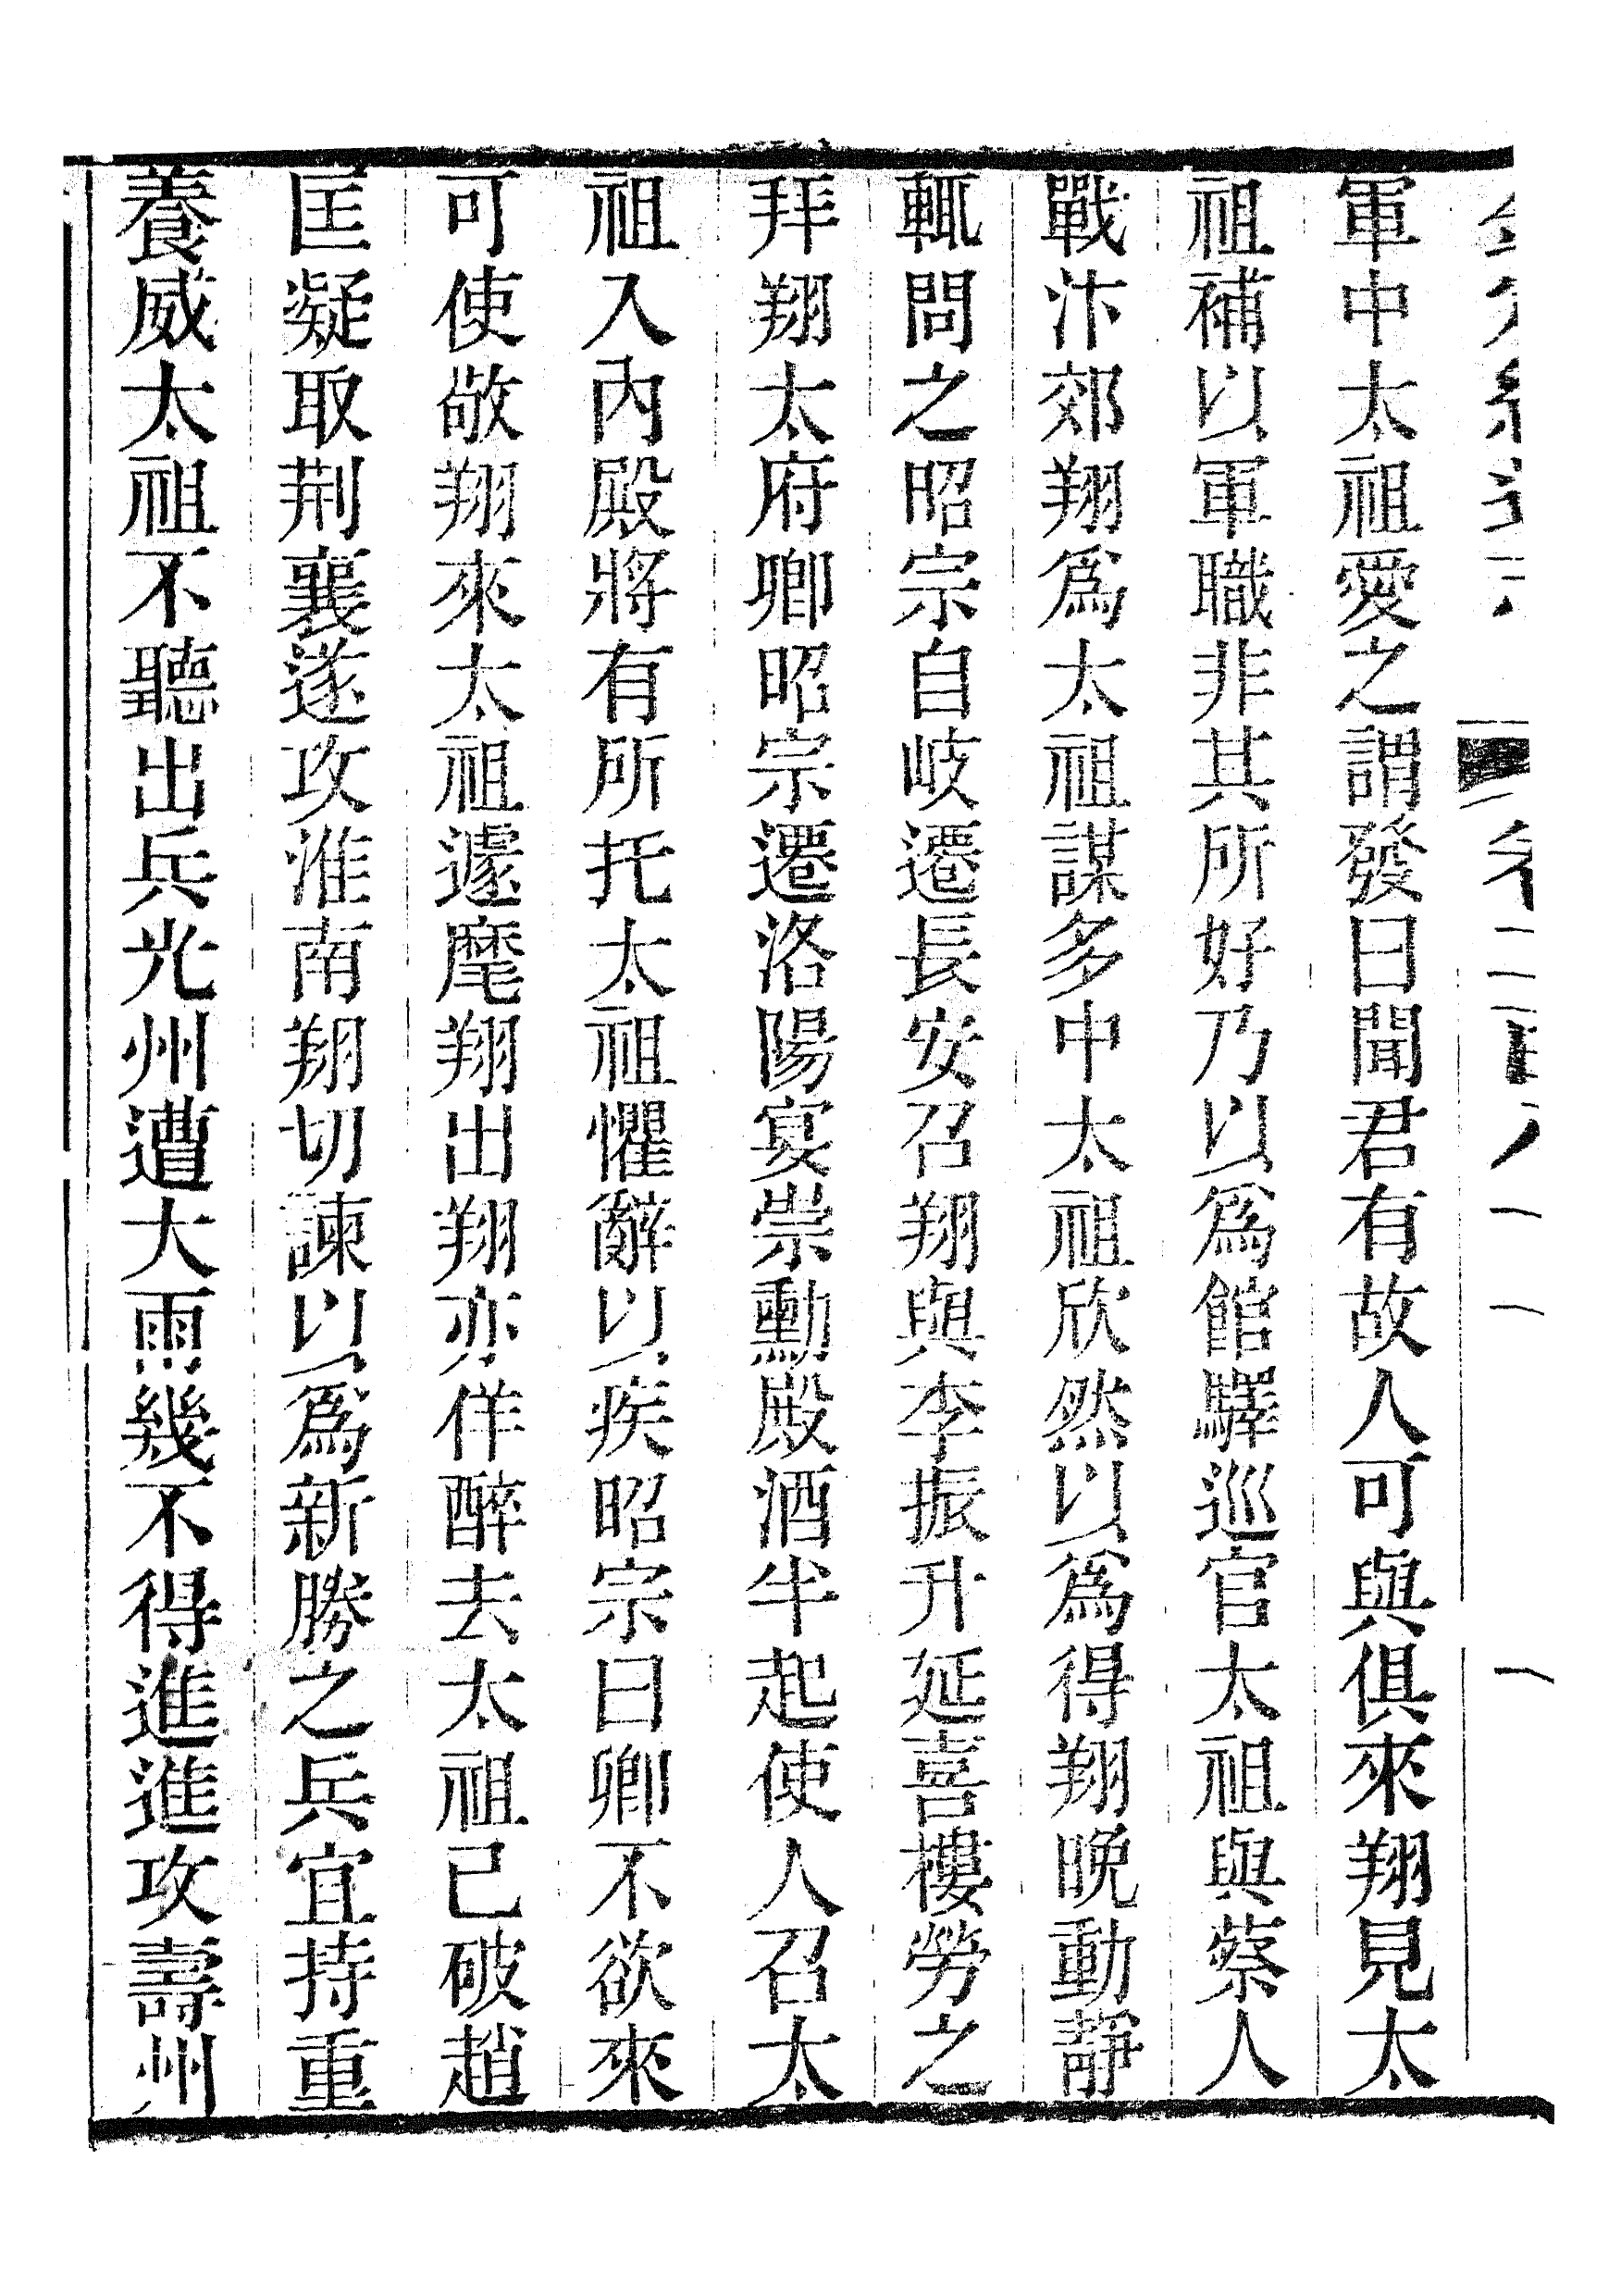 軍中太祖愛之謂發曰聞君有故人可與俱來翔見太
祖補以軍職非其所好乃以爲館驛巡官太祖與蔡人
戰汴郊翔爲太祖謀多中太祖欣然以爲得翔晚動靜
輒問之昭宗自岐遷長安召翔與李振升延喜樓勞之
拜翔太府卿昭宗遷洛陽宴崇勳殿酒半起使人召太
祖入內殿將有所托太祖懼辭以疾昭宗曰卿不欲來
可使敬翔來太祖遽麾翔出翔亦佯醉去太祖已破趙
匡凝取荆襄遂攻淮南翔切諫以爲新勝之兵宜持重
養威太祖不聽出兵光州遭大雨幾不得進進攻壽州